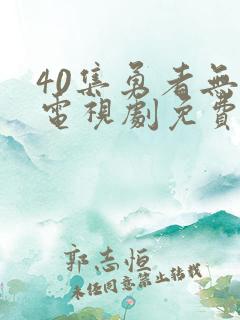 40集勇者無
電視劇免費
郭志恒
未经同意禁止转载